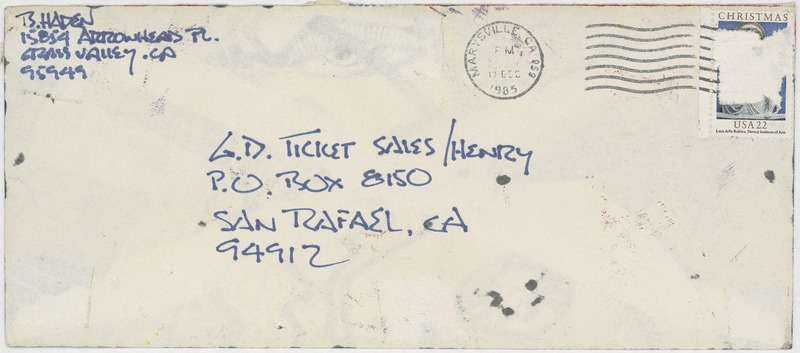 B. HADEN
15854 ARROWHEAD PL.
GRASS VALLEY, CA
95949
MARYSVILLE, CA 959
PM
11 DEC
1985
CHRISTMAS
USA 22
Luca della Robbia, Detroit Institute of Arts
G.D. TICKET SALES/HENRY
P.O. BOX 8150
SAN RAFAEL, CA
94912